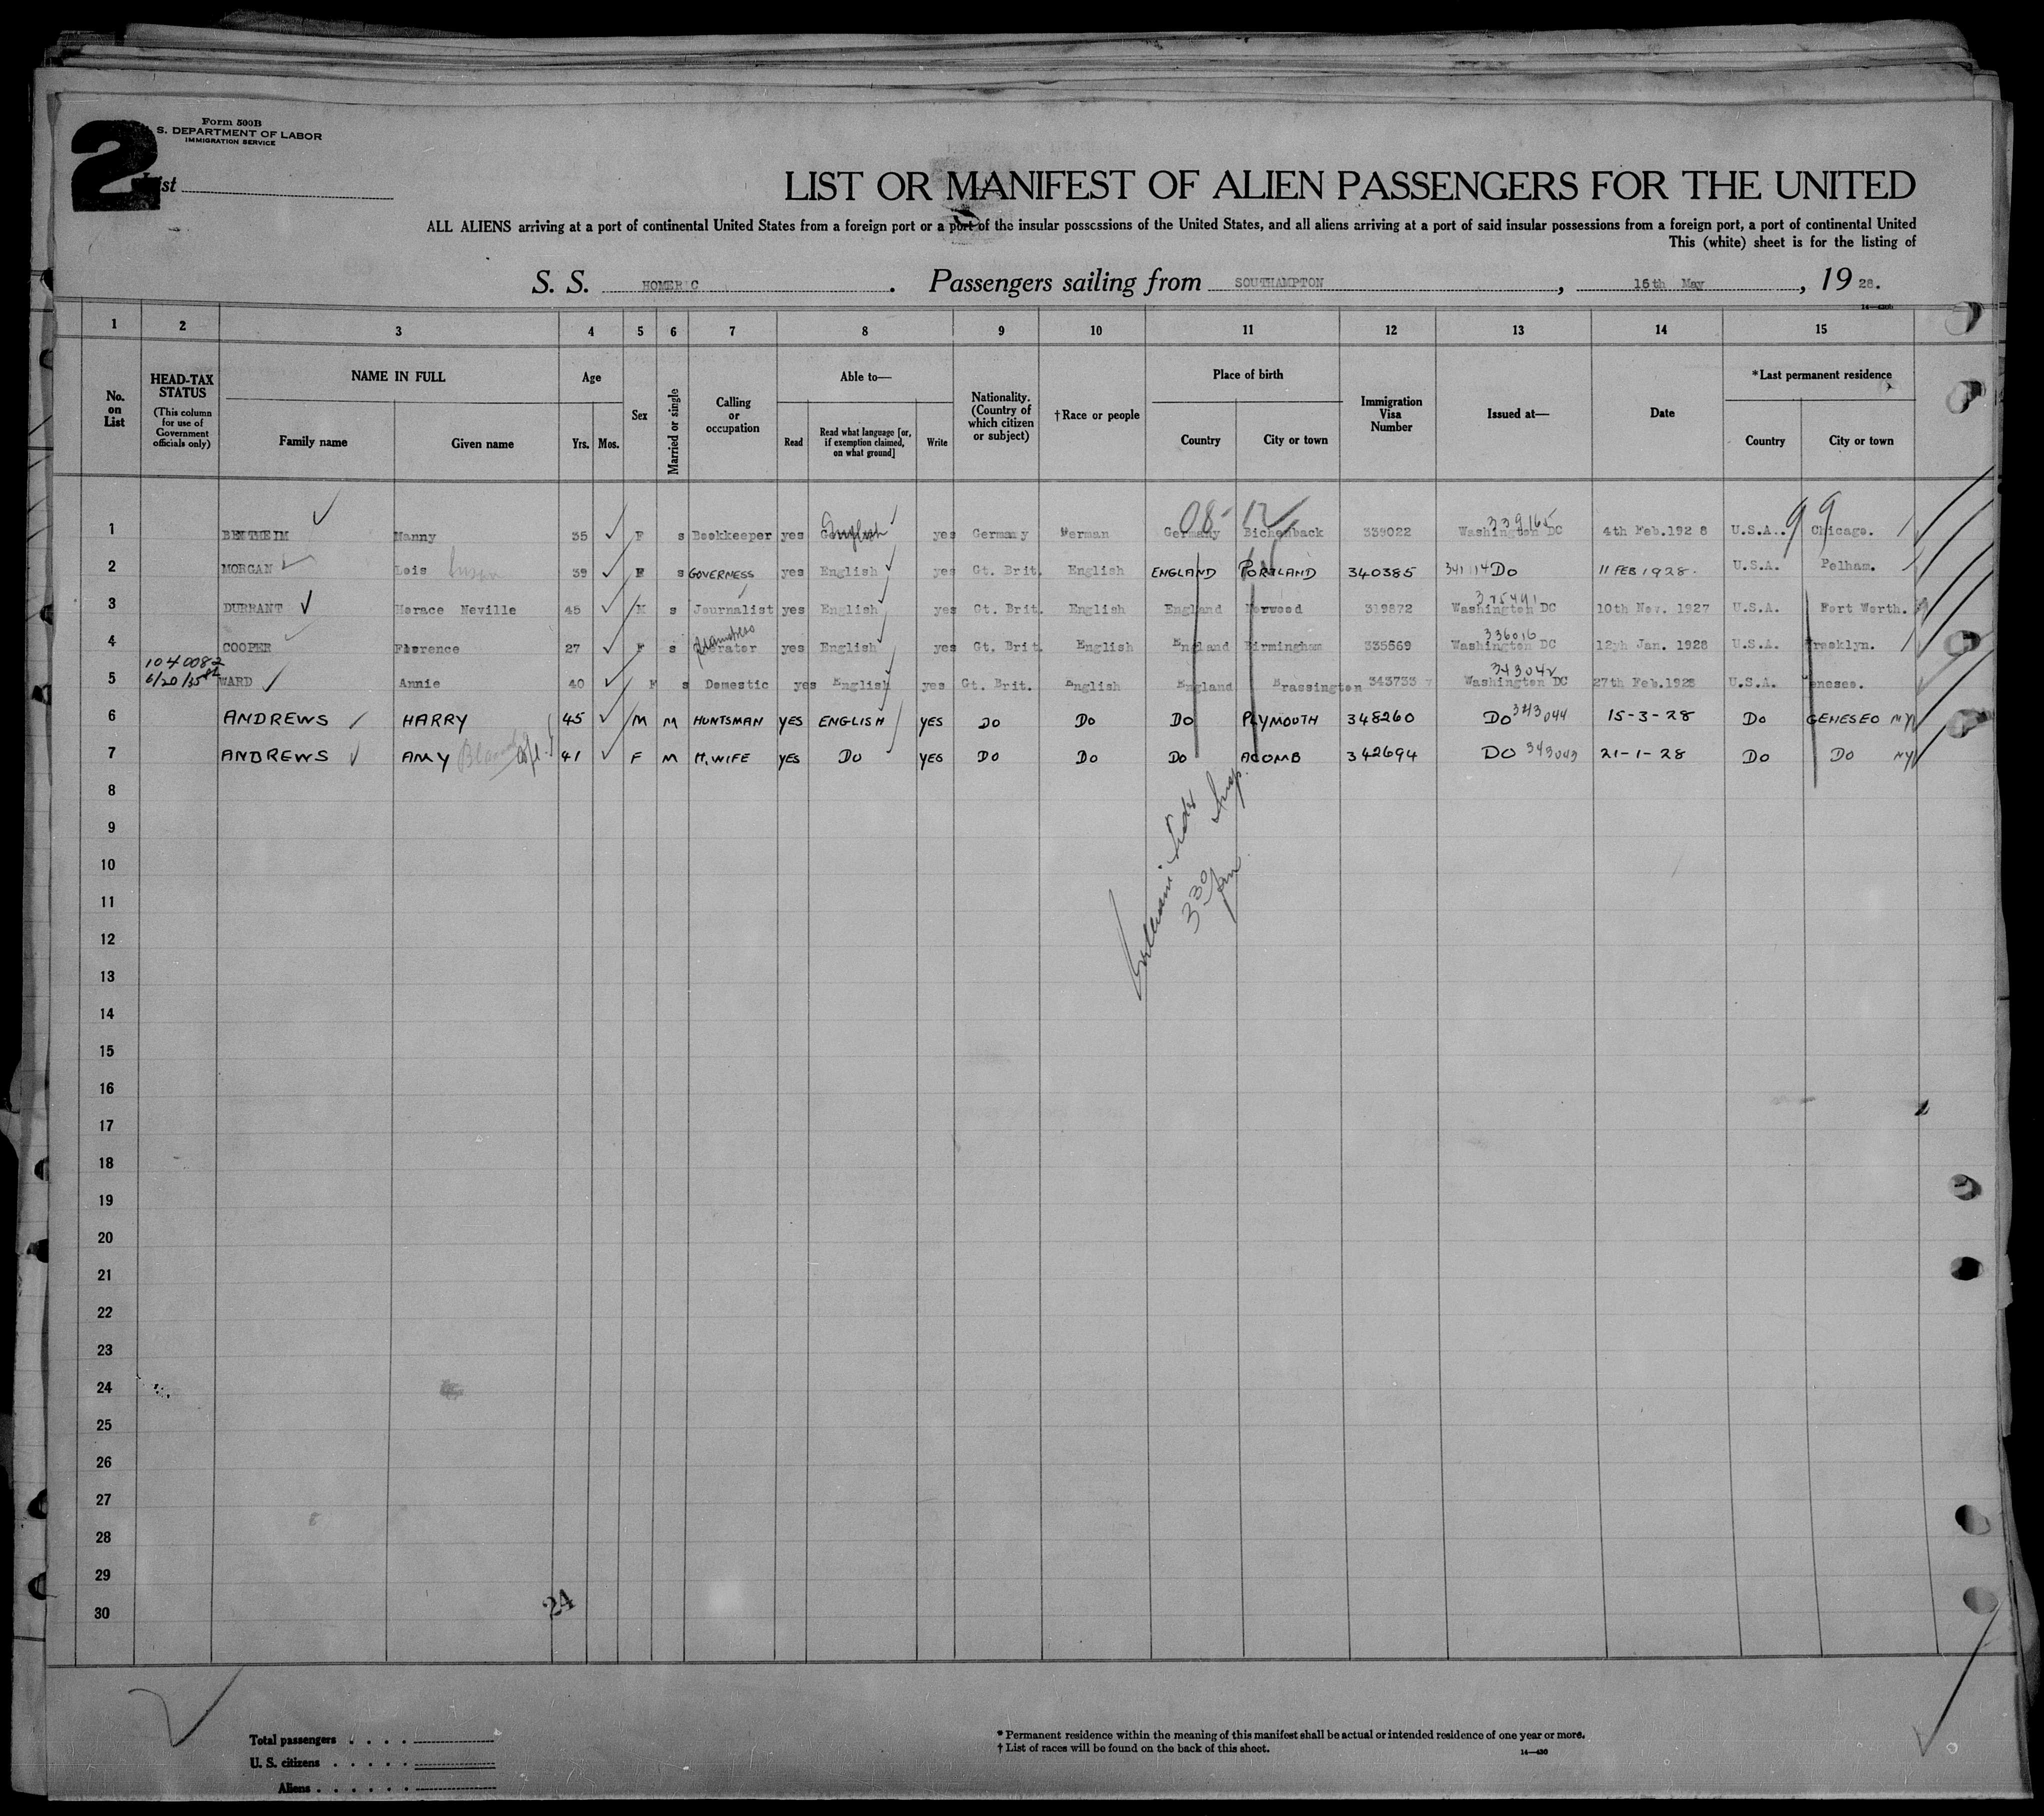 2
Form 500B
S. DEPARTMENT OF LABOR
IMMIGRATION SERVICE
List
LIST OR MANIFEST OF ALIEN PASSENGERS FOR THE UNITED
ALL ALIENS arriving at a port of continental United States from a foreign port or a port of the insular possessions of the United States, and all aliens arriving at a port of said insular possessions from a foreign port, a port of continental United
This (white) sheet is for the listing of
S. S. HOMERIC . Passengers sailing from SOUTHAMPTON , 16th May , 19 28.
1 2 3 4 5 6 7 8 9 10 11 12 13 14 15
No. on List
HEAD-TAX STATUS
(This column for use of Government officials only)
NAME IN FULL
Family name Given name
Age
Yrs. Mos.
Sex
Married or single
Calling or occupation
Able to—
Read
Read what language [or, if exemption claimed, on what ground]
Write
Nationality. (Country of which citizen or subject)
†Race or people
Place of birth
Country City or town
Immigration Visa Number
Issued at—
Date
*Last permanent residence
Country City or town
08- 99
339165
1 BENTHEIM Nanny 35 F s Bookkeeper yes English yes Germany German Germany Bichenback 339022 Washington DC 4th Feb.1928 U.S.A. Chicago.
2 MORGAN Lois Susan 39 F s GOVERNESS yes English yes Gt. Brit. English ENGLAND PORTLAND 340385 341114 Do 11 FEB 1928. U.S.A. Pelham.
3 DURRANT Horace Neville 45 M s Journalist yes English yes Gt. Brit. English England Norwood 319872 Washington DC 10th Nov. 1927 U.S.A. Fort Worth.
336016
4 COOPER Florence 27 F s Operator yes English yes Gt. Brit. English England Birmingham 335569 Washington DC 12yh Jan. 1928 U.S.A. Brooklyn.
1040082
6/20/35
343042
5 WARD Annie 40 F s Domestic yes English yes Gt. Brit. English England Brassington 343733 Washington DC 27th Feb.1928 U.S.A. Geneseo.
6 ANDREWS HARRY 45 M M HUNTSMAN YES ENGLISH YES DO DO DO PLYMOUTH 348260 DO 343044 15-3-28 DO GENESEO NY
7 ANDREWS AMY 41 F M H.WIFE YES DO YES DO DO DO ACOMB 342694 DO 343043 21-1-28 DO DO NY
8
9
10
11
12
13
14
15
16
17
18
19
20
21
22
23
24
25
26
27
28
29
30
Insp.
3 30 pm
24
Total passengers . . . .
U. S. citizens . . . . .
Aliens . . . . . .
* Permanent residence within the meaning of this manifest shall be actual or intended residence of one year or more.
† List of races will be found on the back of this sheet.
14—430